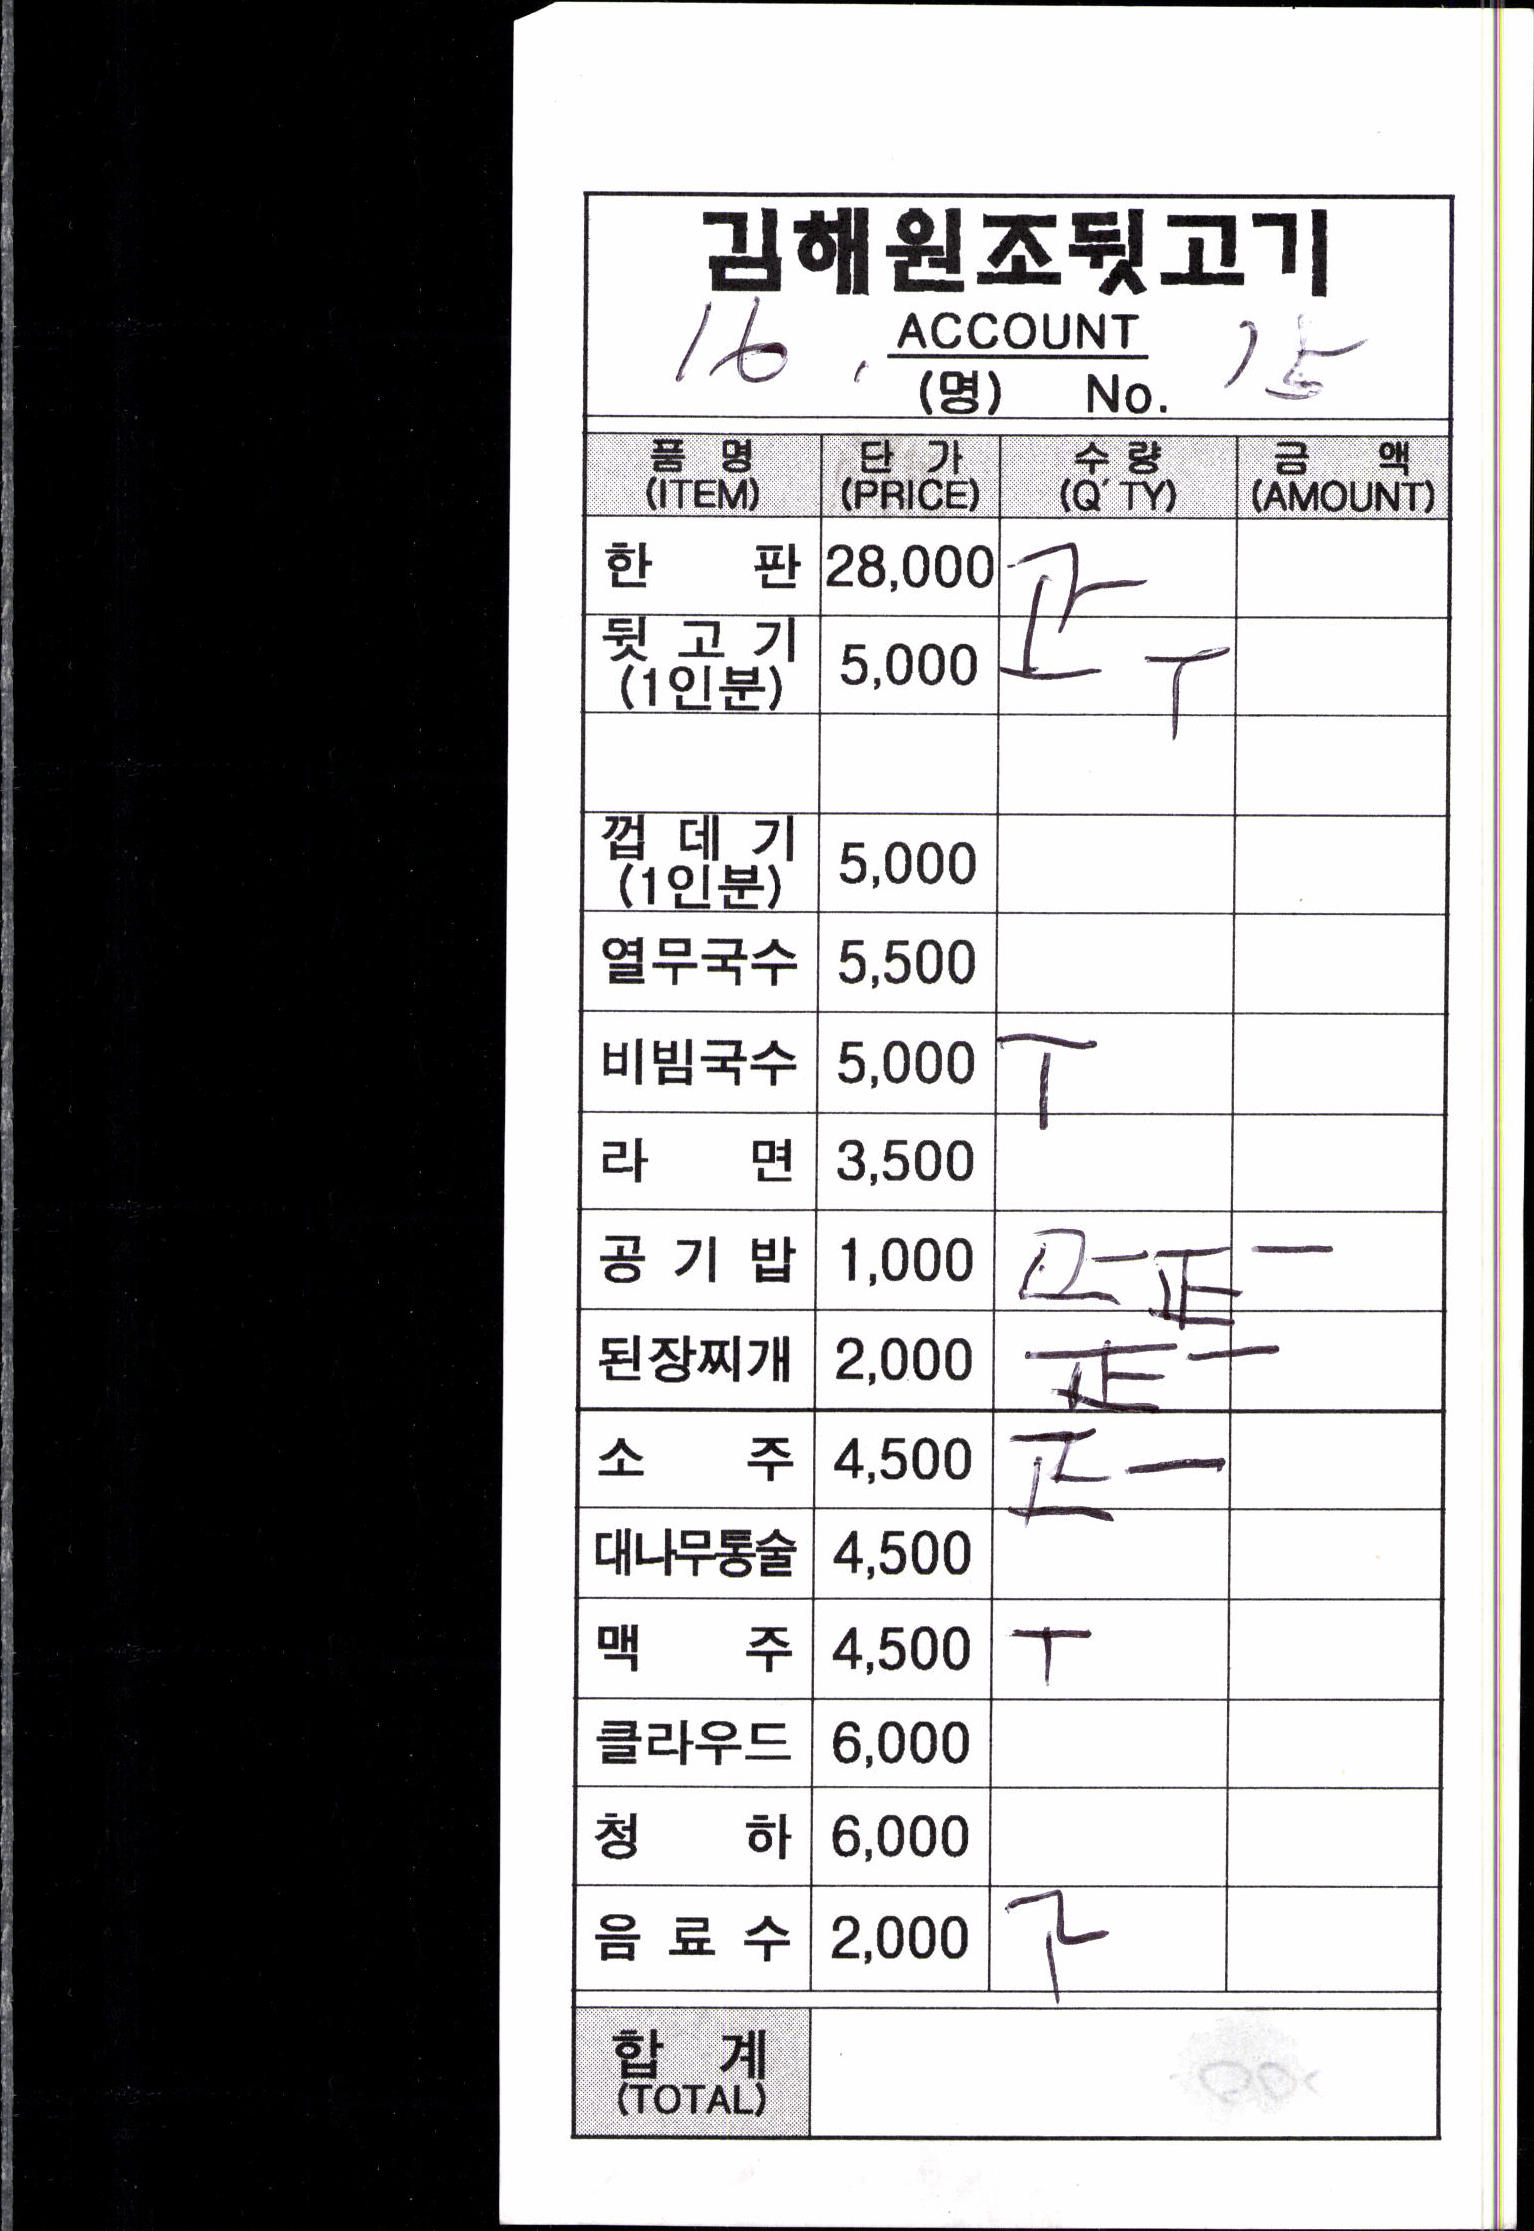 김해원조뒷고기
16. ACCOUNT 15
(명) No.
품 명 단 가 수 량 금 액
(ITEM) (PRICE) (Q'TY) (AMOUNT)
한 판 28,000 正
뒷 고 기 (1인분) 5,000 T
껍 데 기 (1인분) 5,000
열무국수 5,500
비빔국수 5,000 T
라 면 3,500
공 기 밥 1,000 正 正 一
된장찌개 2,000 正 一
소 주 4,500 正 一
대나무통술 4,500
맥 주 4,500 T
클라우드 6,000
청 하 6,000
음 료 수 2,000 下
합 계
(TOTAL)